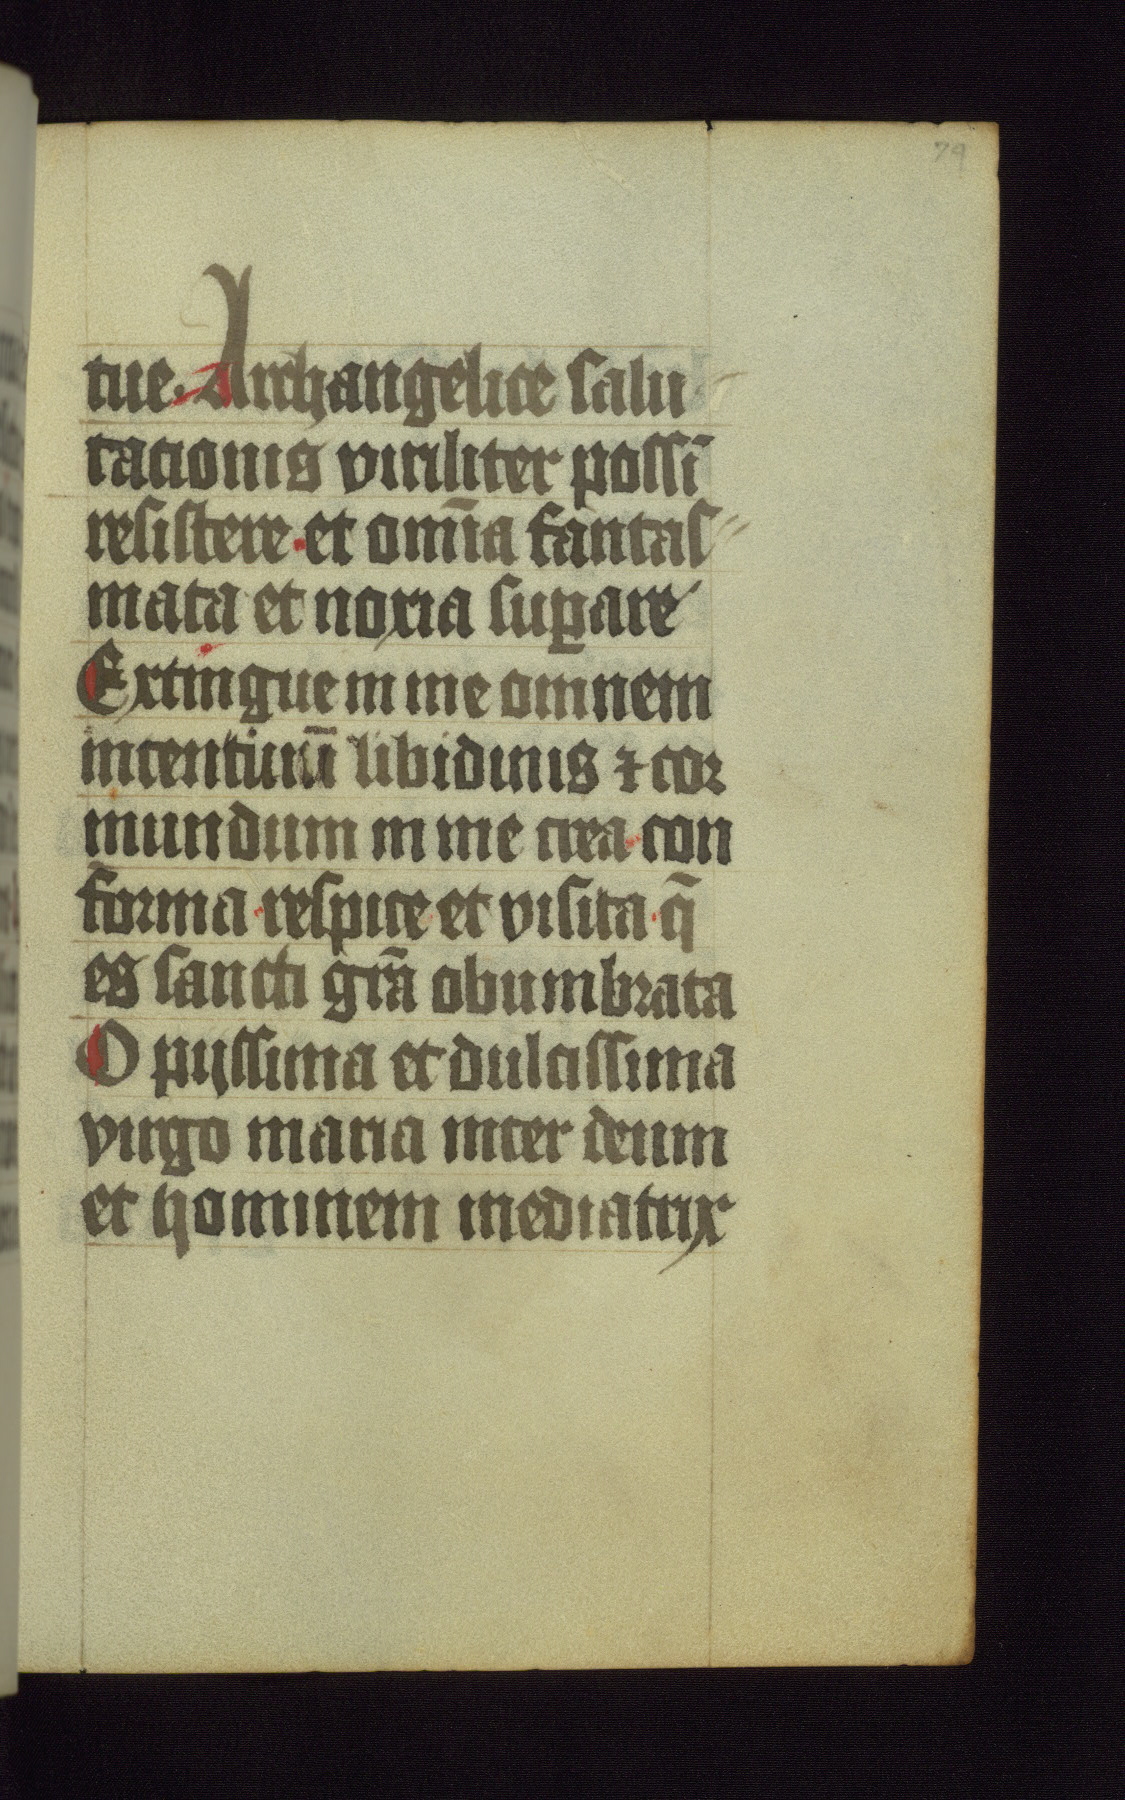 79
tue. Archangelice salu
tacionis viriliter possī
resistere · et om̄ia fantas
mata et noxia suꝑare
Extingue in me omnem
intentiuū libidinis ⁊ cor
mundum in me crea · con
forma · respice et visita · q̄
es sancti gr̄a obumbrata
O pijssima et dulcissima
virgo maria inter deum
et hominem mediatrix